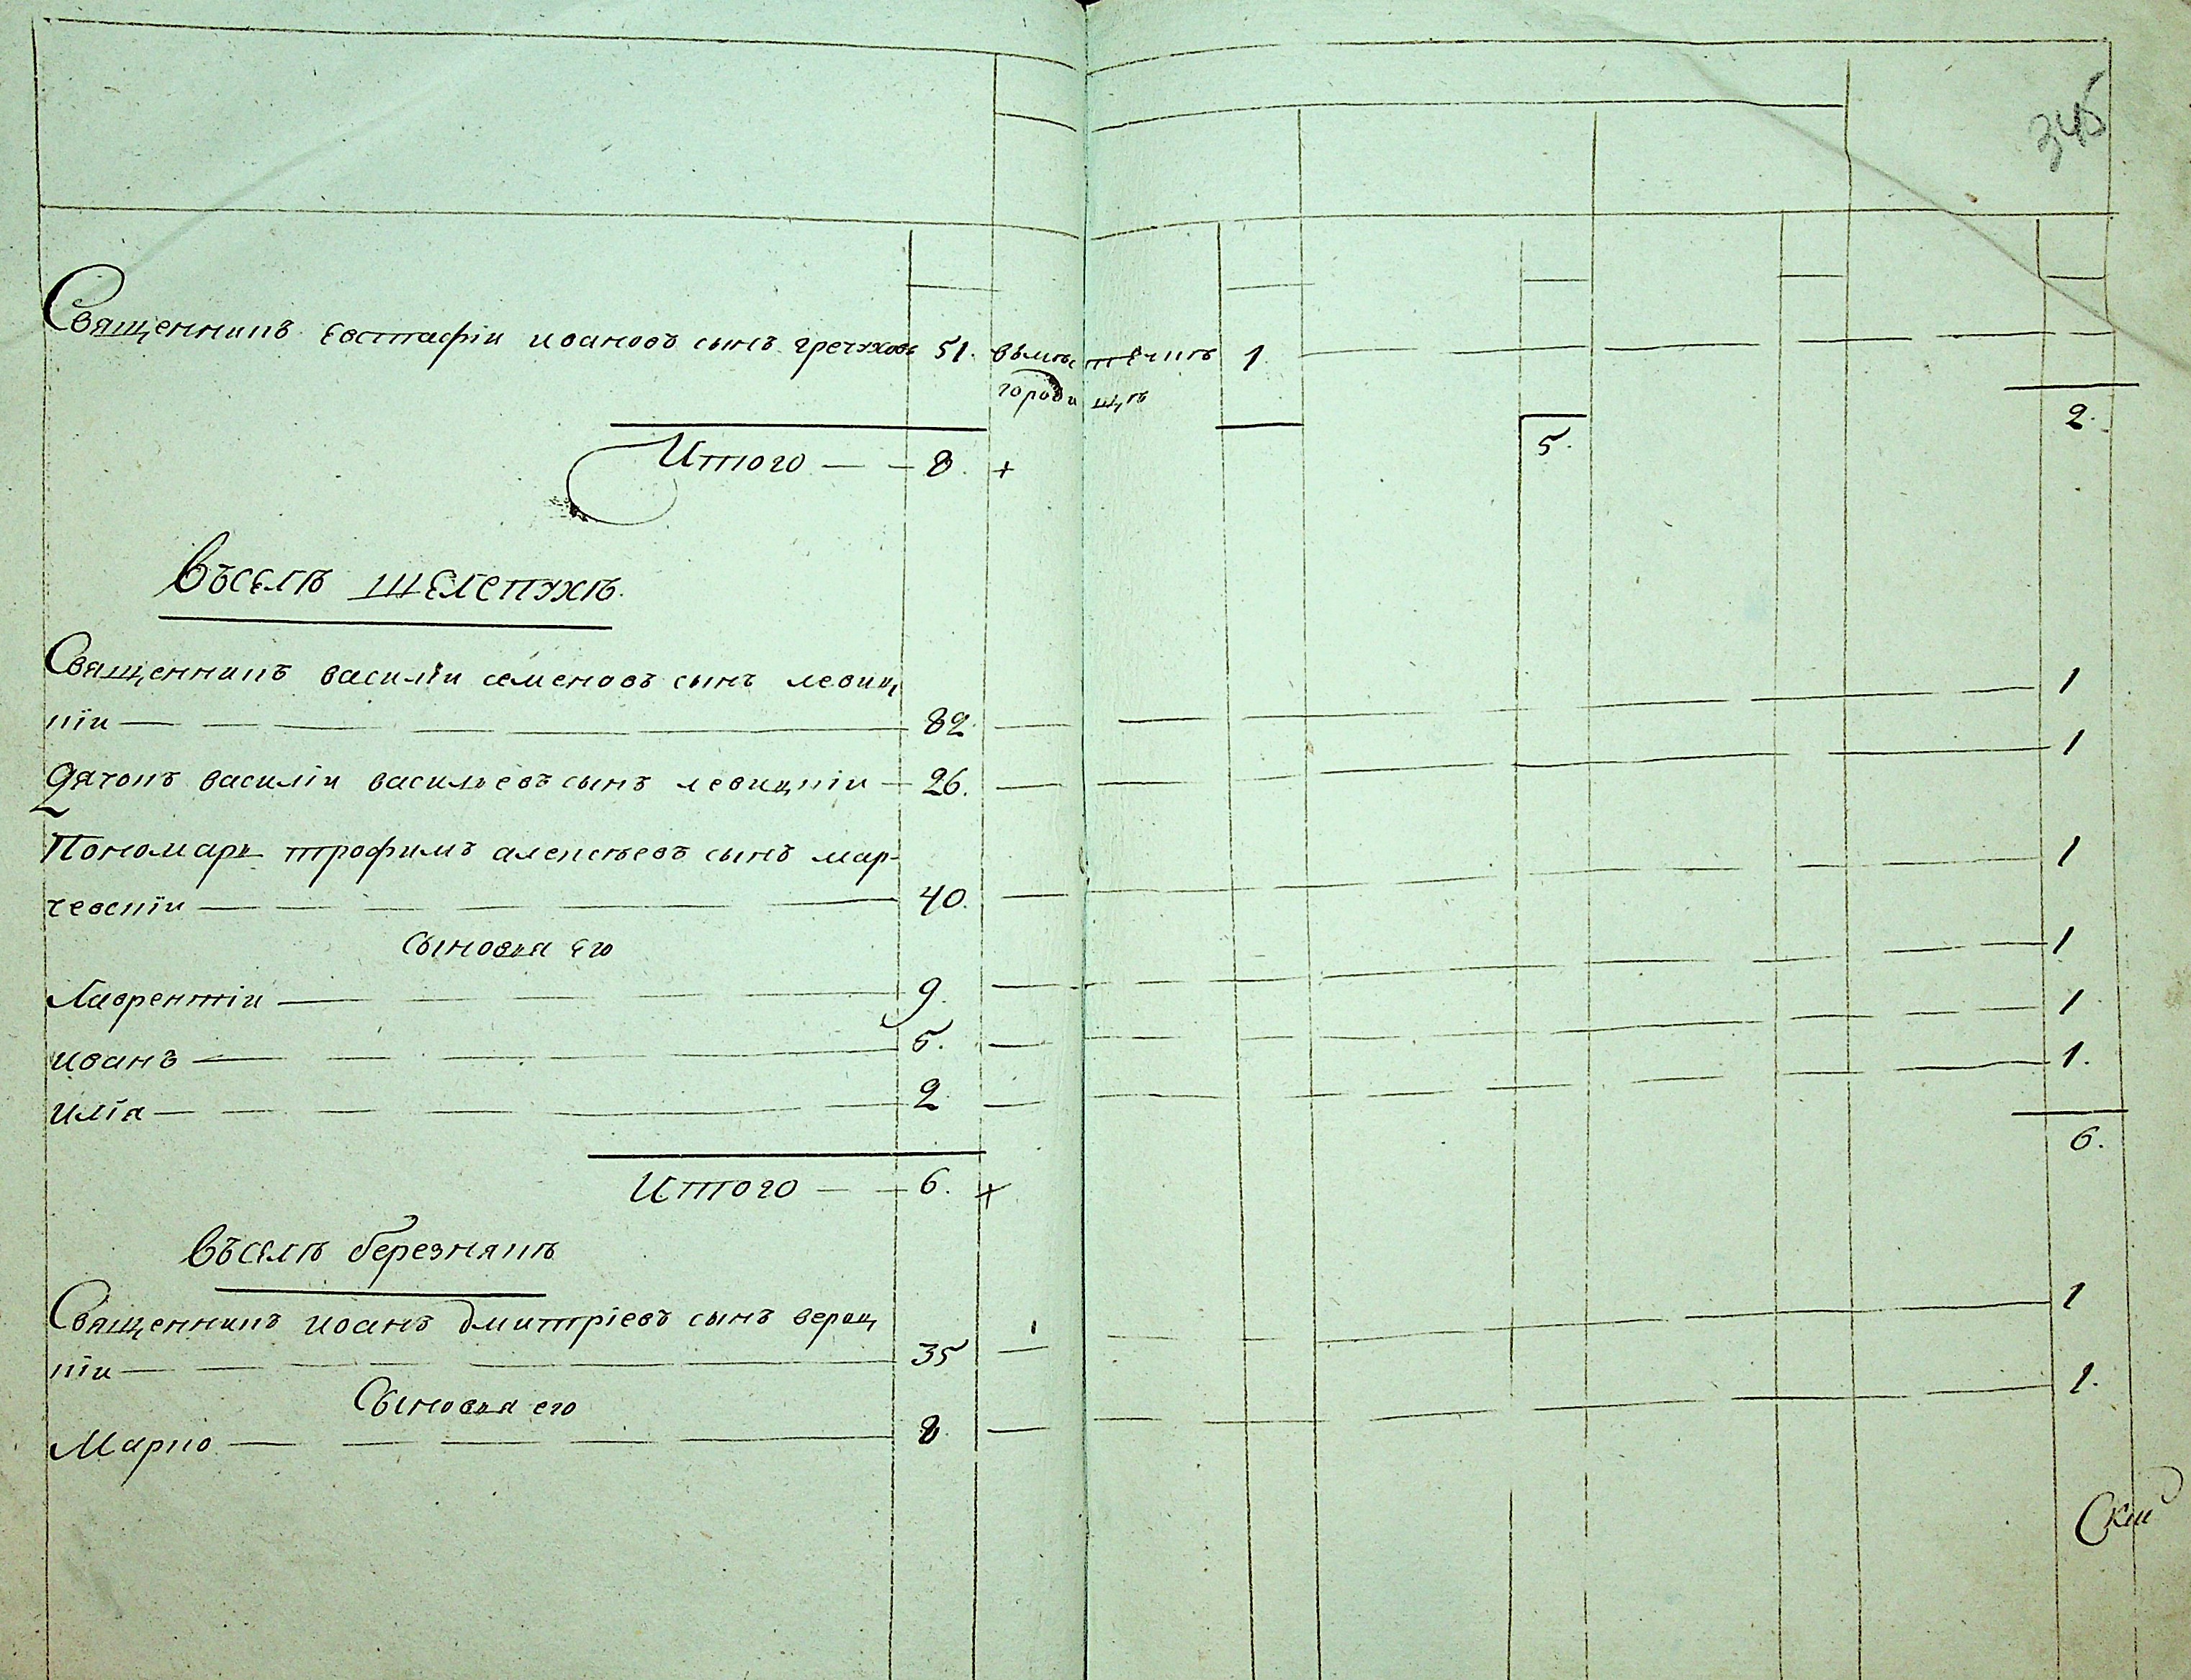 345
Священникъ Евстафiи ивановъ сынъ гречуховъ 51. вымѣстечкѣ 1.
городищѣ
2.
Итого 8. + 5.
Въселѣ шелепухѣ.
Священникъ василiи семеновъ сынъ левиц
кiи 82 1
Дячокъ василiи васильевъ сынъ левицкiи 26. 1
Пономарь трофимъ алексѣевъ сынъ мар-
чевскiи 40. 1
Сыновья Его
Лаврентiи 9. 1
иванъ 5. 1
илiя 2 1.
6.
Итого 6. +
Въселѣ березнякѣ
Священникъ иоанъ дмитрiевъ сынъ вериц
кiи 35 1
Сыновья его
Марко 8. 1.
Скiи